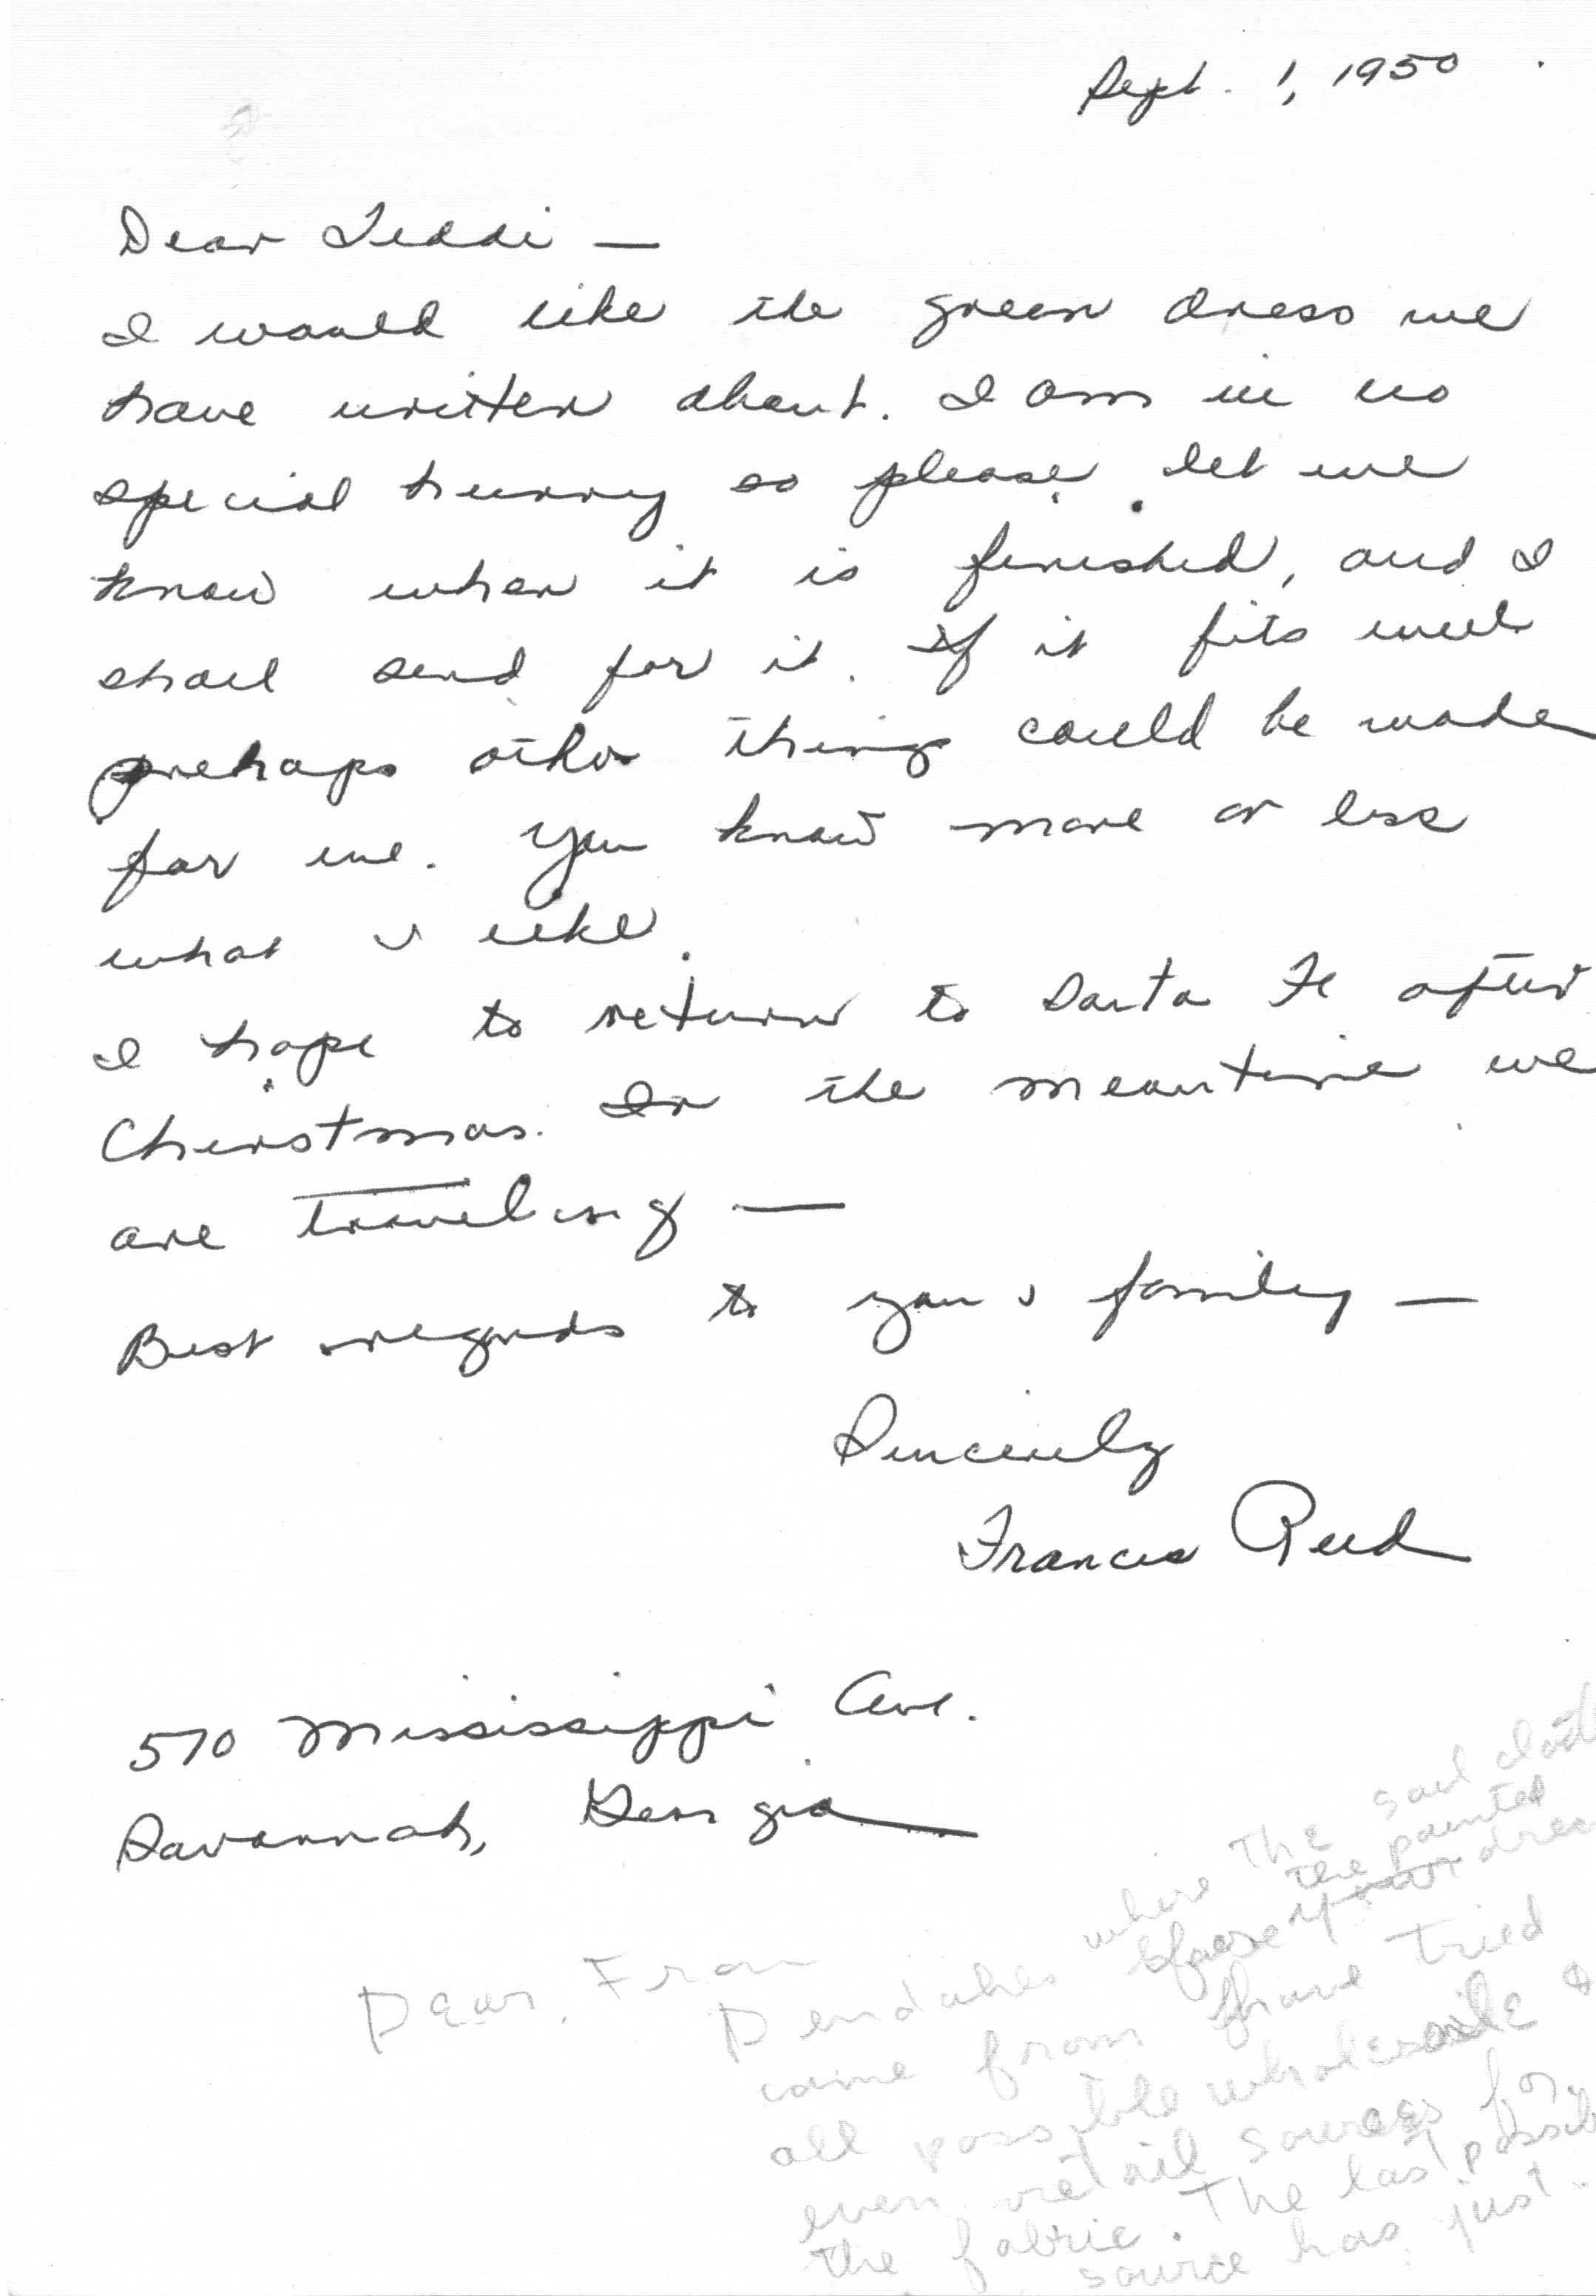 Sept. 1, 1950
Dear Teddi —
I would like the green dress we
have written about. I am in no
special hurry so please let me
know when it is finished, and I
shall send for it. If it fits well
prehaps other things could be made
for me. You know more or less
what I like.
I hope to return to Santa Fe after
Christmas. In the meantime we
are traveling —
Best regards to you & family —
Sincerely
Frances Reed
570 Mississippi Ave.
Savannah, Georgia
Dear Fran
where the sail cloth
the painted
came from have tried
all possible wholesale &
even retail sources for
the fabric. The last
source has just